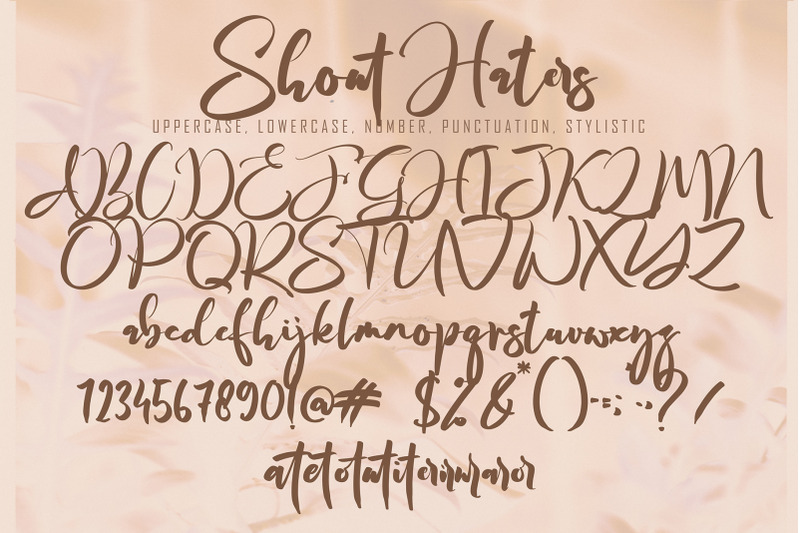 Shout Haters
UPPERCASE, LOWERCASE, NUMBER, PUNCTUATION, STYLISTIC
ABCDEFGHIJKLMN
OPQRSTUVWXYZ
abcdefghijklmnopqrstuvwxyz
1234567890!@# $%&*():;..?/
atetotutiteriruraror